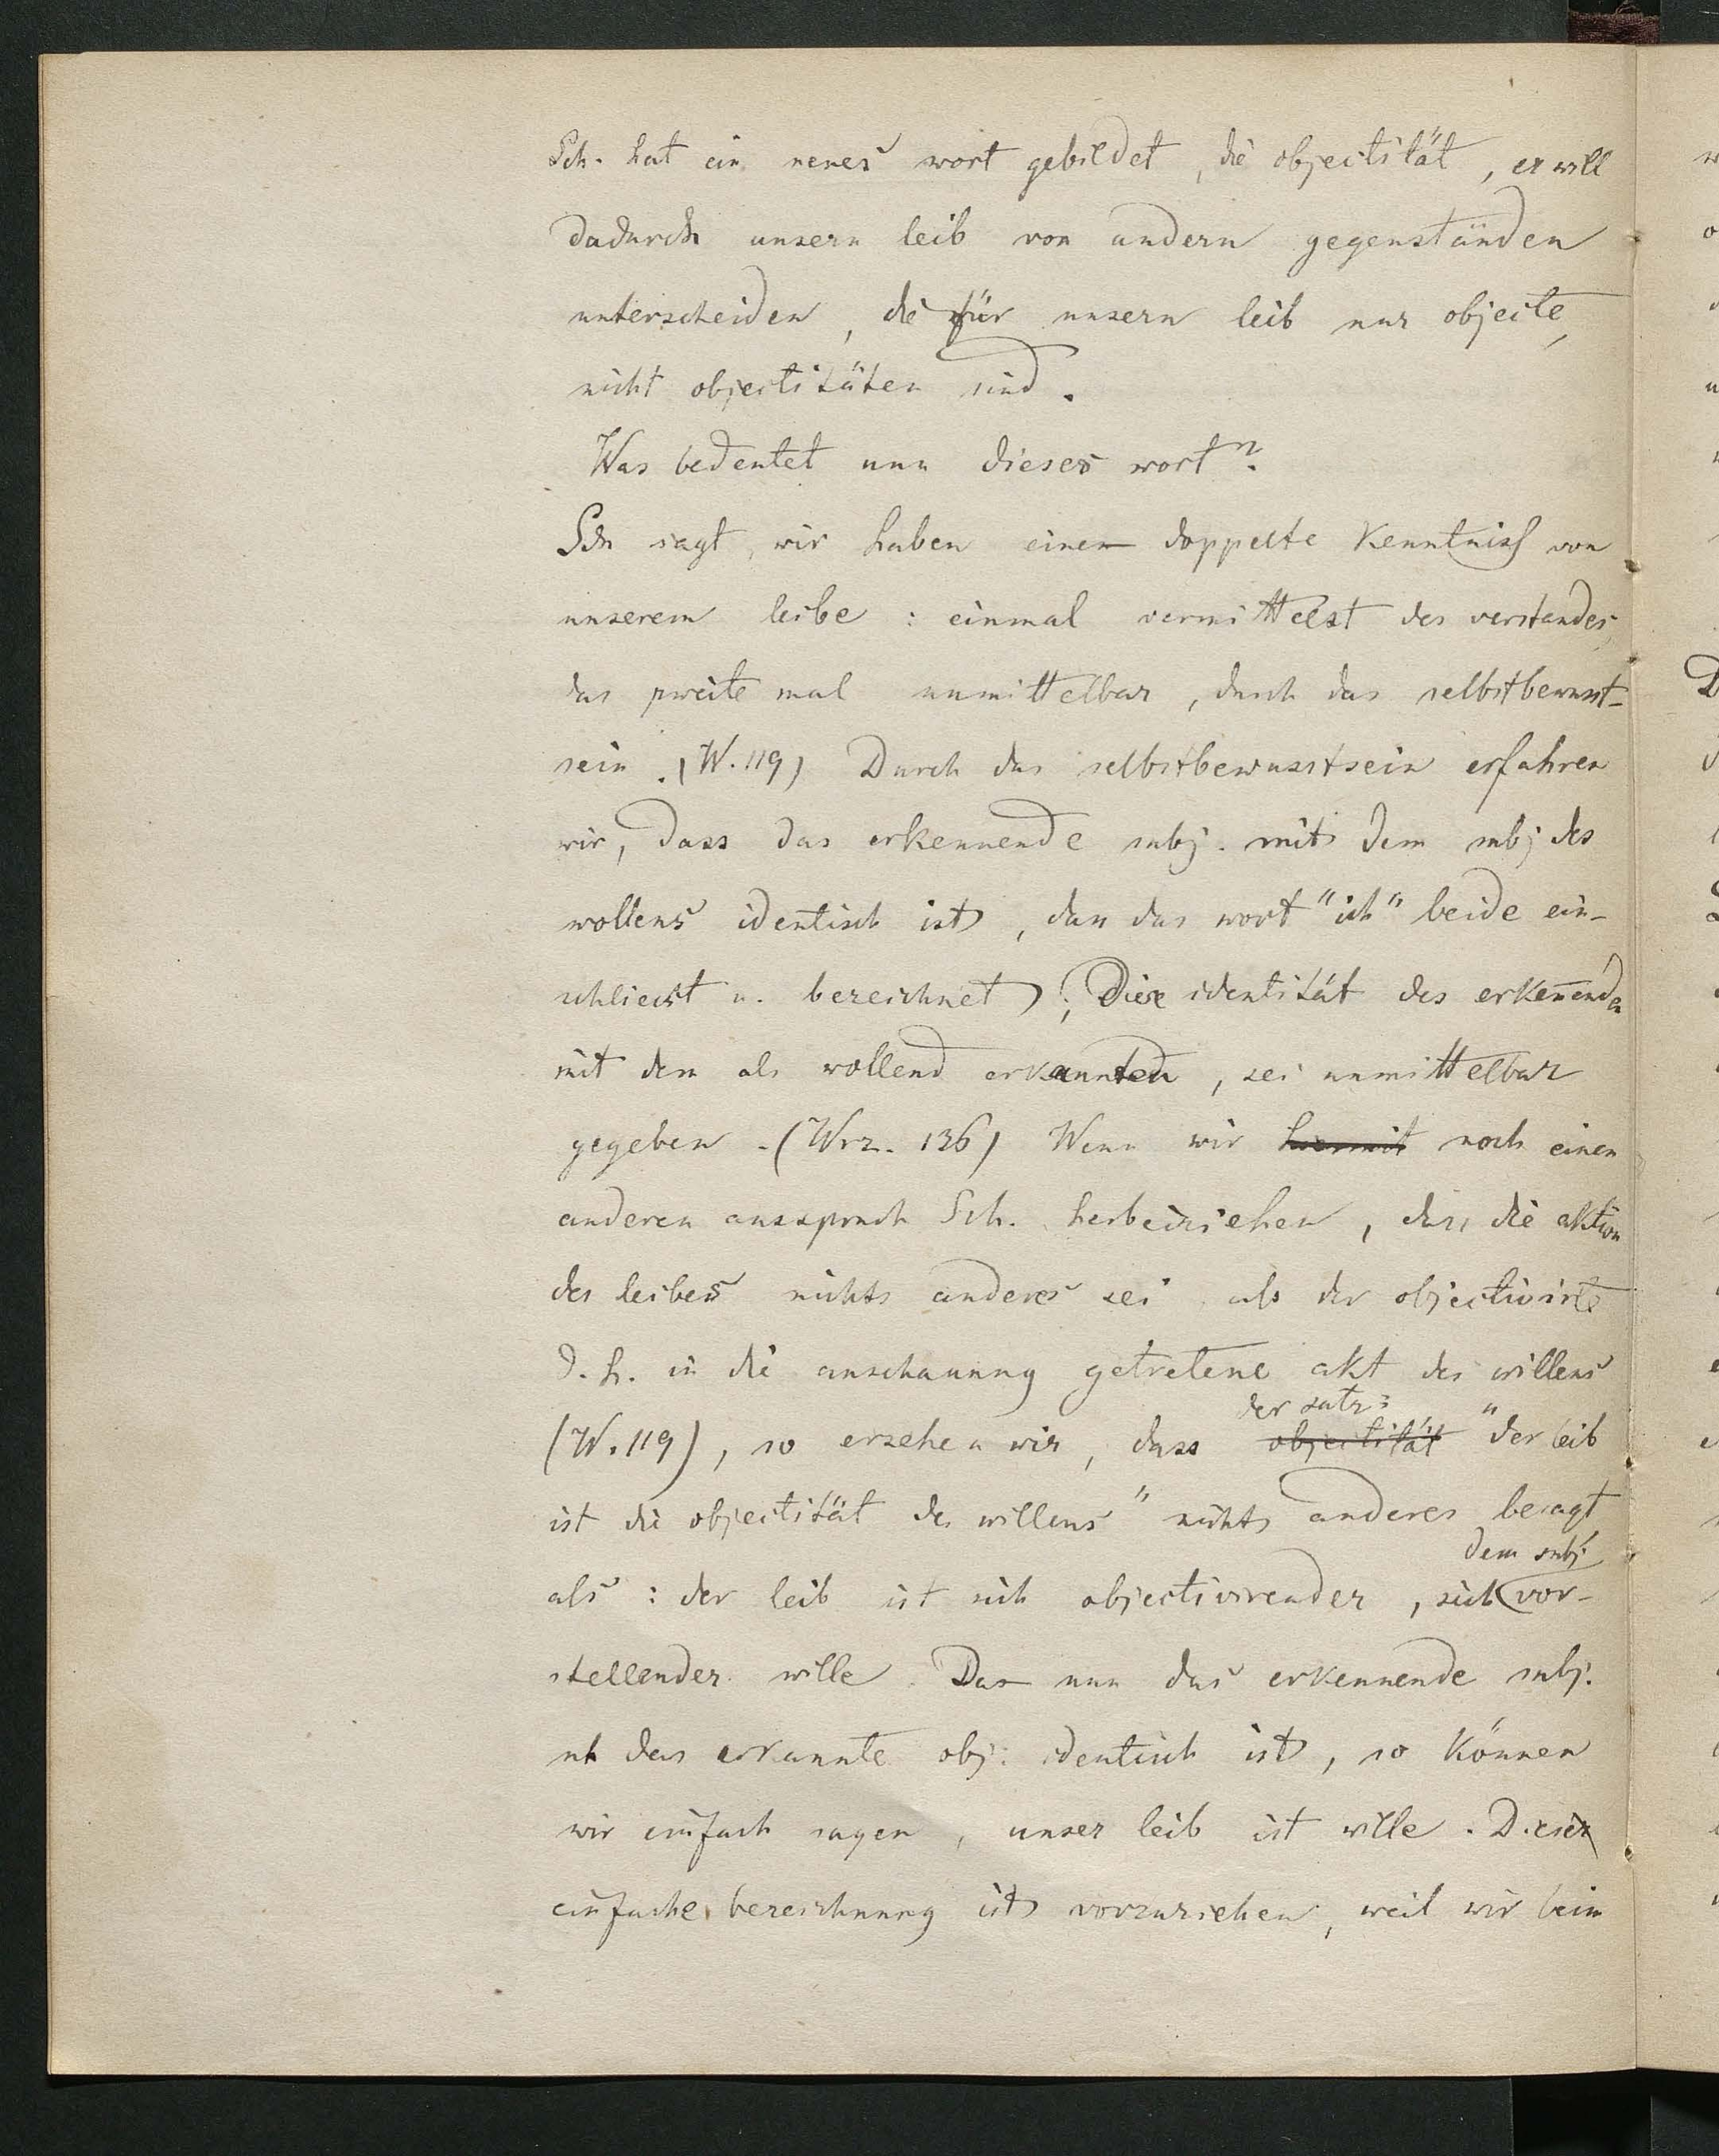 Sch. hat ein neues wort gebildet, die objectität, er will
dadurch unsern leib von andern gegenständen
unterscheiden, die für unsern leib nur objecte,
nicht objectitäten sind.
Was bedeutet nun dieses wort?
Sch sagt, wir haben eine doppelte Kenntniss von
unserem leibe: einmal vermittelst des verstandes,
das zweite mal unmittelbar, durch das selbstbewusst-
sein. (W. 119) Durch das selbstbewusstsein erfahren
wir, dass das erkennende subj. mit dem subj des
wollens identisch ist, dass das wort "ich" beide ein-
schliesst u. bezeichnet; Diese identität des erkeñenden
mit dem als wollend erkannten, sei unmittelbar
gegeben. (Wrz. 136) Wenn wir hiermit noch einen
anderen ausspruch Sch. herbeiziehen, dass die aktion
des leibes nichts anderes sei als der objectivirte
d. h. in die anschauung getretene akt des willens
der satz:
(W. 119), so ersehen wir, dass objectität "der leib
ist die objectität des willens" nichts anderes besagt
dem subj
als: der leib ist sich objectivirender, sich vor-
stellender wille. Da nun das erkennende subj.
u das erkannte obj. identisch ist, so können
wir einfach sagen, unser leib ist wille. Diese
einfache bezeichnung ist vorzuziehen, weil wir beim